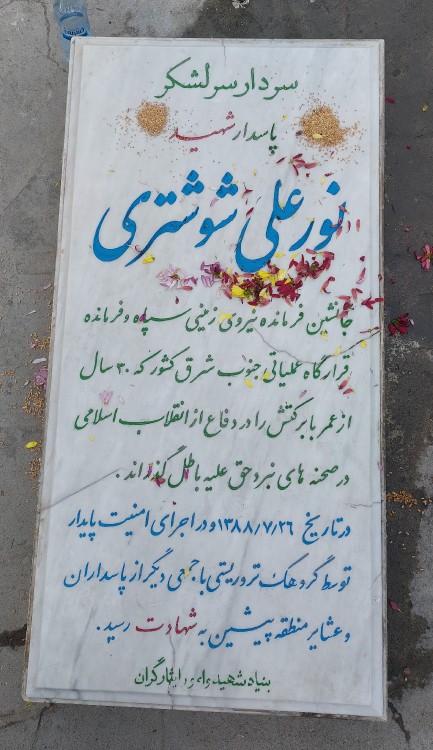 سردار سرلشکر
پاسدار شهید
نور علی شوشتری
جانشین فرمانده نیروی زمینی سپاه و فرمانده
قرارگاه عملیاتی جنوب شرق کشور که ۳۰ سال
از عمر با برکتش را در دفاع از انقلاب اسلامی
در صحنه های نبرد حق علیه باطل گذراند .
در تاریخ ۱۳۸۸/۷/۲۶ و در اجرای امنیت پایدار
توسط گروهک تروریستی با جمعی دیگر از پاسداران
و عشایر منطقه پیشین به شهادت رسید .
بنیاد شهید و امور ایثارگران